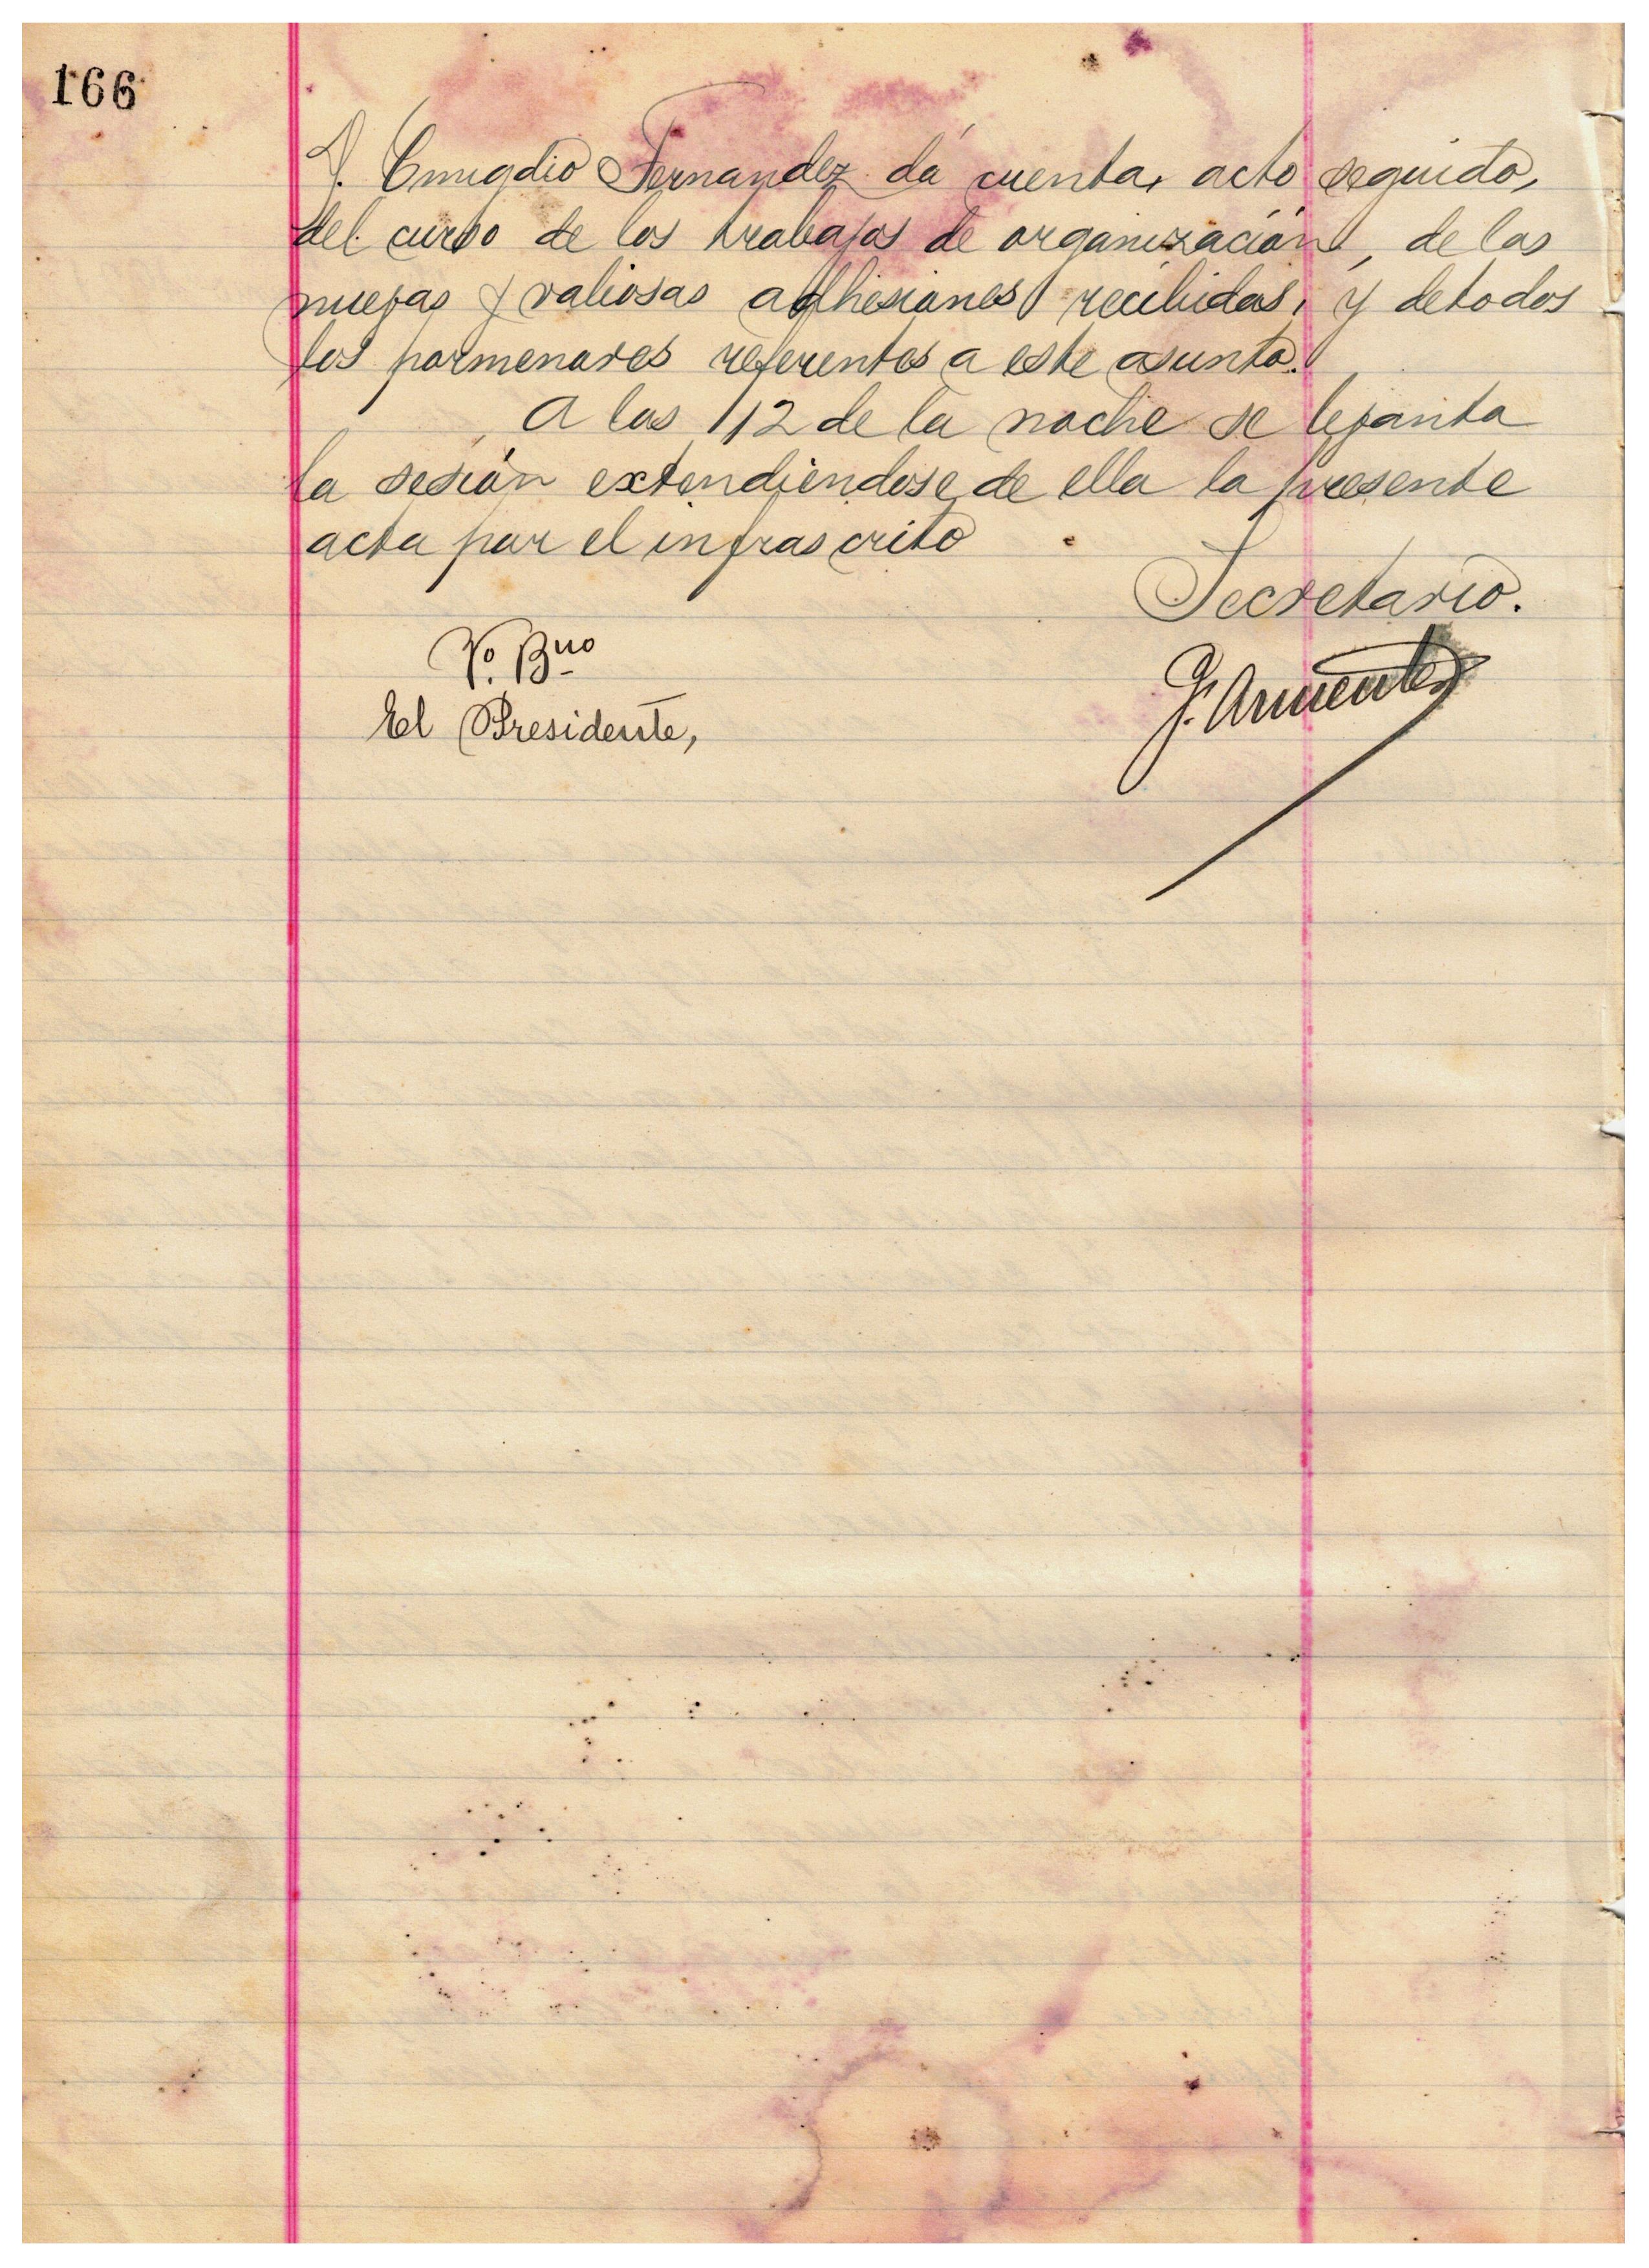 166
D. Emigdio Fernandez dá cuenta, acto seguido,
del curso de los trabajos de organización, de las
nuevas y valiosas adhesiones recibidas, y de todos
los pormenores referentes a este asunto.
A las 12 de la noche se levanta
la sesión extendiéndose de ella la presente
acta por el infrascrito
Secretario.
Vº. Bno
El Presidente,
J. Armenteros